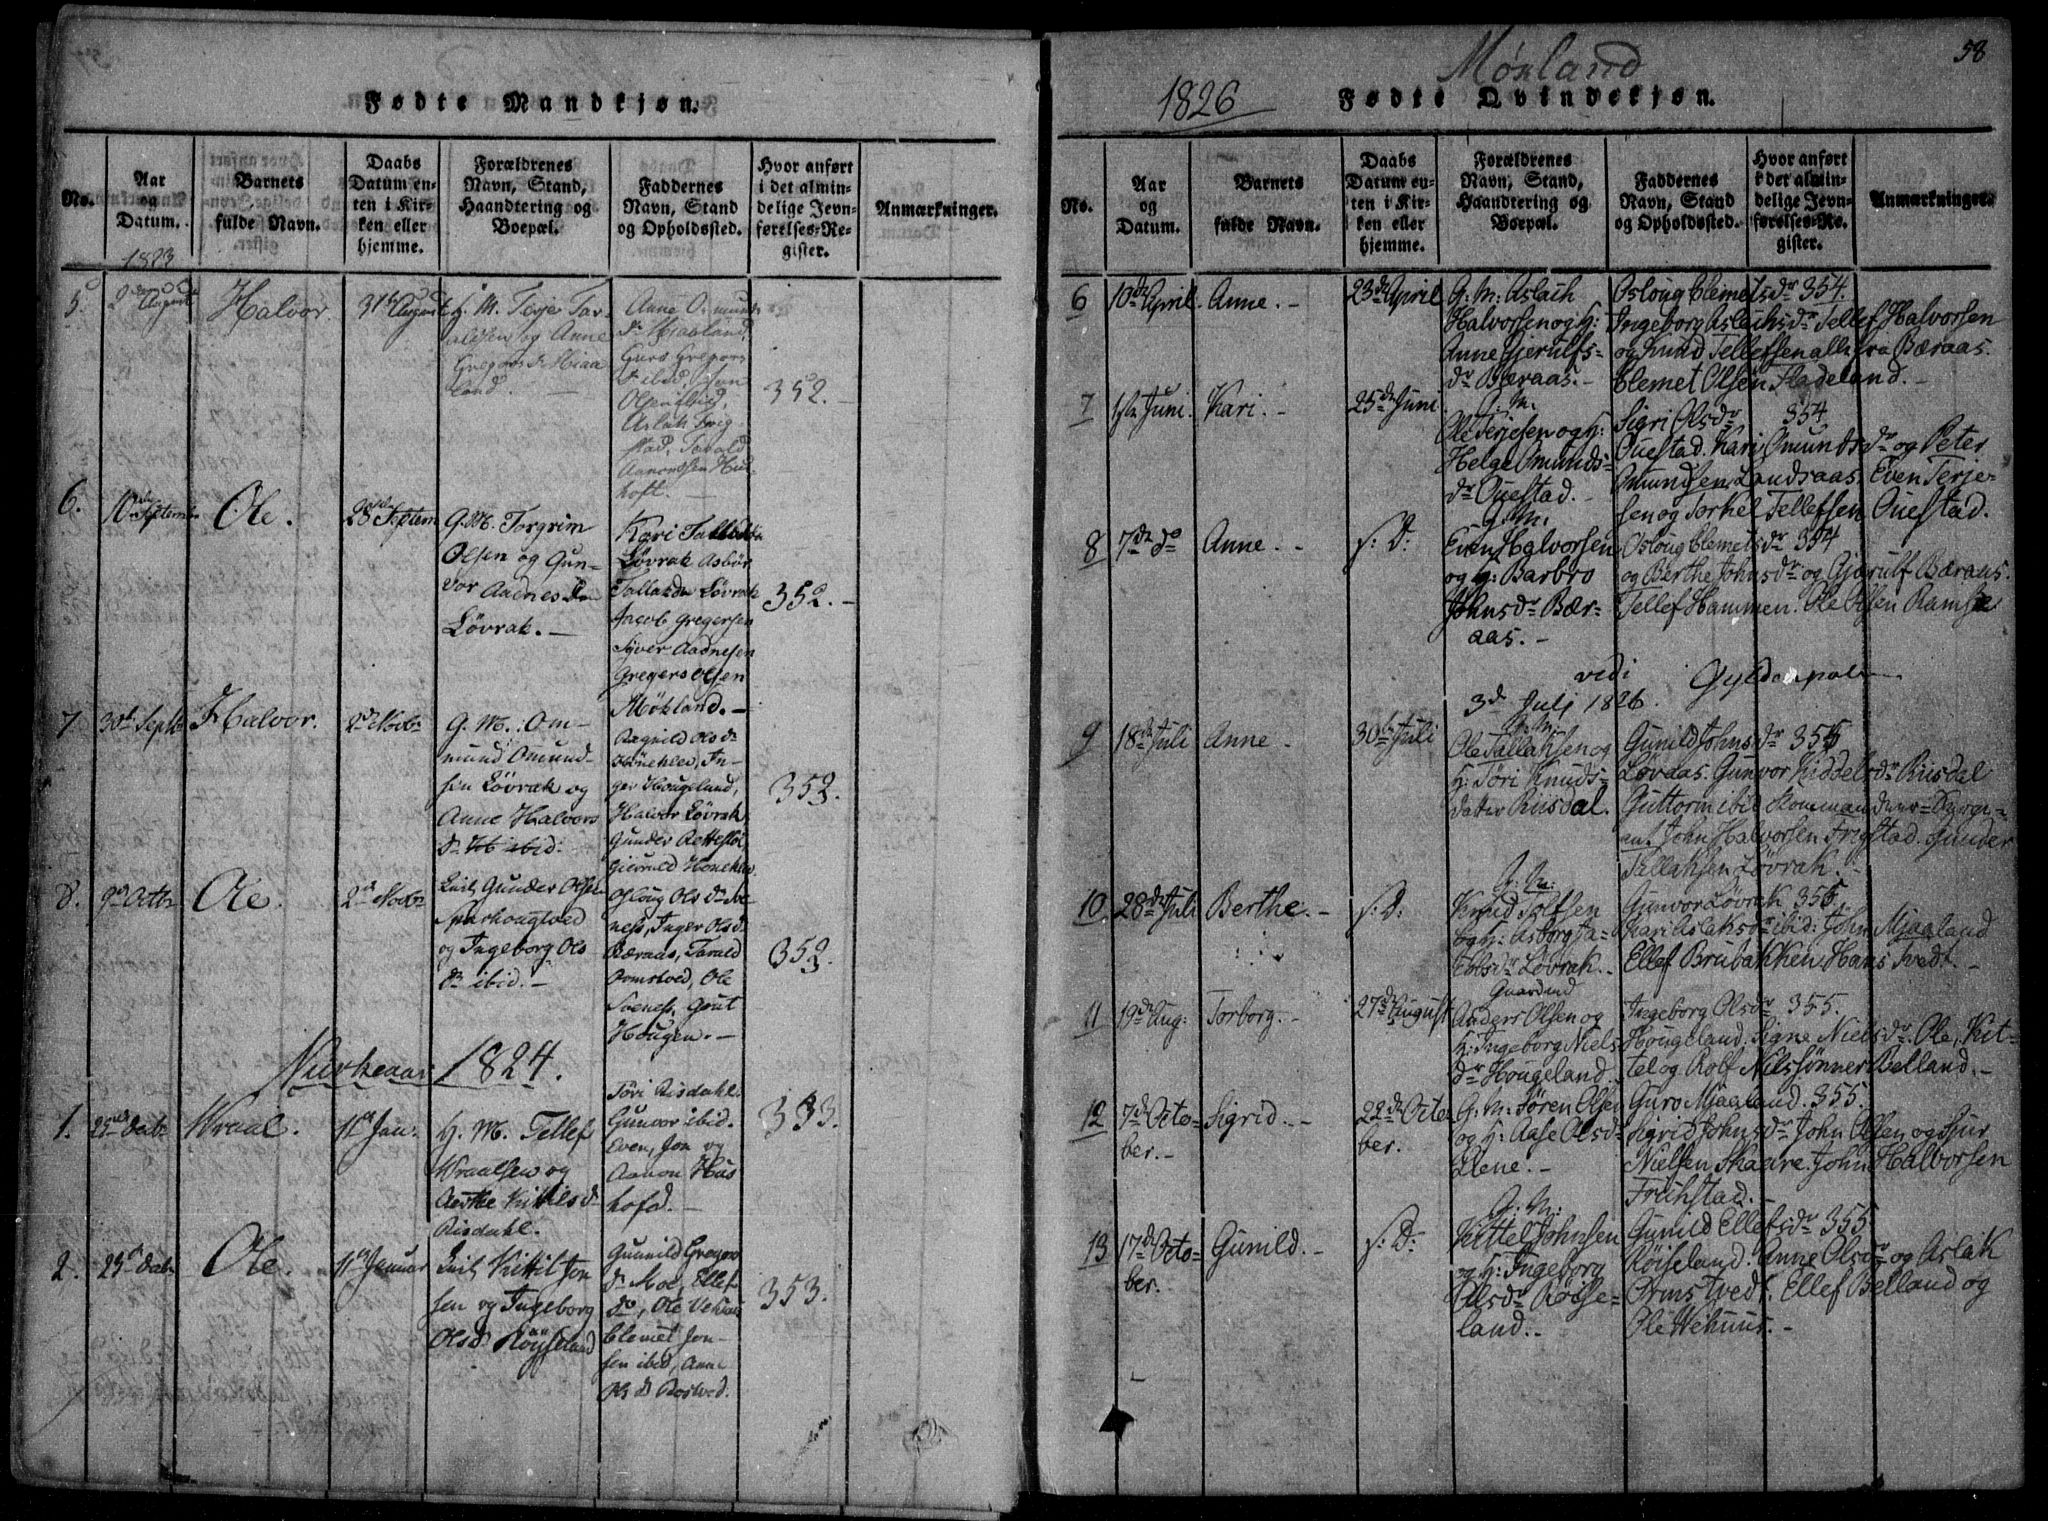 Fødte Mandkjøn.
No.
Aar
og
Datum.
Barnets
fulde Navn.
Daabs
Datum en-
ten i Kir-
ken eller
hjemme.
Forældrenes
Navn, Stand,
Haandtering og
Boepæl.
Faddernes
Navn, Stand
og Opholdssted.
Hvor anført
i det almin-
delige Jevn-
førelses-Re-
gister.
Anmærkninger.
1823
5.
August
Halvor.
31te August
G. M. Terje Tar-
aldsen og Anne
Gregors dr Miaa
land.
Anne
dr Mjaaland,
Guro Gregors
dr ibid, Jon
Olsen ibid,
Aslak Frig-
stad, Tarald
Aanonsen Hus
hoft.
352.
6.
10de Septemb.
Ole.
28de Septem
G. M. Torgrim
Olsen og Gun-
vor Aadnes dr
Løvrak.
Kari
Løvrak Asbør
Tallaksdr Løvrak
Jacob Gregersen
Syver Aadnesen
Gregers Olsen
Mökland.
352.
7.
30te Septb.
Halvor.
2d Novbr
G. M. Om-
mund Omund-
sen Løvrak og
Anne Halvors
dr ibid.
Ragnild Ols dr
Hönehlev, In-
ger Hougeland,
Halvor Løvrak
Gunder
Gieruld Hönehlev
352.
8.
9de Octbr
Ole.
2de Novbr
Gunder Olsen
Sparhougtved
og Ingeborg Ols
dr ibid.
Osloug Ols dr Sve-
ness, Inger Ols d.
Bæraas, Tarald
Ormstved, Ole
Sveness, Grut
Hougen.
352.
Kirkeaar 1824.
1.
Wraal.
11te Jan.
G. M. Tellef
Wraalsen og
Aasthe Kittels d.
Risdahl.
Töri Risdahl.
Gunvor ibid.
Even, Jon og
Aanon Hus
hofd.
353.
2.
Ole.
11te Januar
Kittil Jon
sen og Ingeborg
Olsdr Röyseland
Gunnild Gregors
dr Moe, Ellef
do, Ole Vehuus
Clemet Jon-
sen ibid, Anne
Ols dr Rostved.
353.
58
Mørland
1826
Fødte Qvindekjøn.
No.
Aar
og
Datum.
Barnets
fulde Navn.
Daabs
Datum en-
ten i Kir-
ken eller
hjemme.
Forældrenes
Navn, Stand,
Haandtering og
Boepæl.
Faddernes
Navn, Stand
og Opholdssted.
Hvor anført
i det almin-
delige Jevn-
førelses-Re-
gister.
Anmærkninger.
6
10de April
Anne.
23de April
G: M: Aslach
Halvorsen og H:
Anne Gjerulfs-
dr Bæraas.
Osloug Clemetsdr 354.
Ingeborg Aslachsdr Tellef Halvorsen
og Knud Tellefsen alle fra Bæraas.
Clemet Olsen Fladeland.
7
1ste Juni.
Kari.
25de Juni
G. M.
Ole Terjesen og H:
Helge Omunds-
dr Ouestad.
Sigri Olsdr 354
Ouestad. Kari Omundsdr og Peter
Omundsen Landsaas. Even Terje-
sen og Torkel Tellefsen Ouestad.
8
7de do
Anne.
s: D:
G. M.
Even Halvorsen
og H: Barbro
Johnsdr Bær-
aas.
Osloug Clemetsdr 354
og Berthe Johnsdr og Gjerulf Bæraas.
Tellef Hammen. Ole Olsen Ramse
vidi
3d Julj 1826.
Gyldenpalm
9
18de Juli
Anne.
30te Juli
G. M.
Ole Tallaksen og
H: Töri Knuds-
datter Riisdal.
Gunild Johnsdr 355
Løvaas. Gunvor Kiddelsdr Riisdal
Guttorm ibid
John Halvorsen Frigstad. Gunder
Tallaksen Løvrak.
10.
28de Juli
Berthe.
s: D:
G. M:
Knud Tolfsen
og H: Asborg Ja-
cobsdr Løvrak.
Gunvor Løvrak 355.
Kari Aslaksdr ibid: John Mjaaland
Ellef Brubakken, Hans Tvedt.
11
19de Aug:
Torborg.
27de August
Gaardmd
Anders Olsen og
H: Ingeborg Niels
dr Hougeland.
Ingeborg Olsdr 355.
Hougeland. Signe Nielsdr. Ole, Kit-
tel og Rolf Nilssønner Belland.
12
7de Octo-
ber.
Sigrid.
22de Octo-
ber.
G: M: Sören Olsen
og H: Aase Olsd
Elene.
Guro Mjaaland. 355.
Sigrid Johnsdr John Olsen og Sjur
Nielsen Skaare. John Halvorsen
Frichstad.
13
17de Octo-
ber.
Gunild.
s: D:
G: M:
Kittel Johnsen
og H: Ingeborg
Olsdr Röise-
land.
Gunild Ellefsdr 355
Röiseland. Anne Olsdr og Aslak
Ormstvedt. Ellef Belland og
Ole Wehuus.